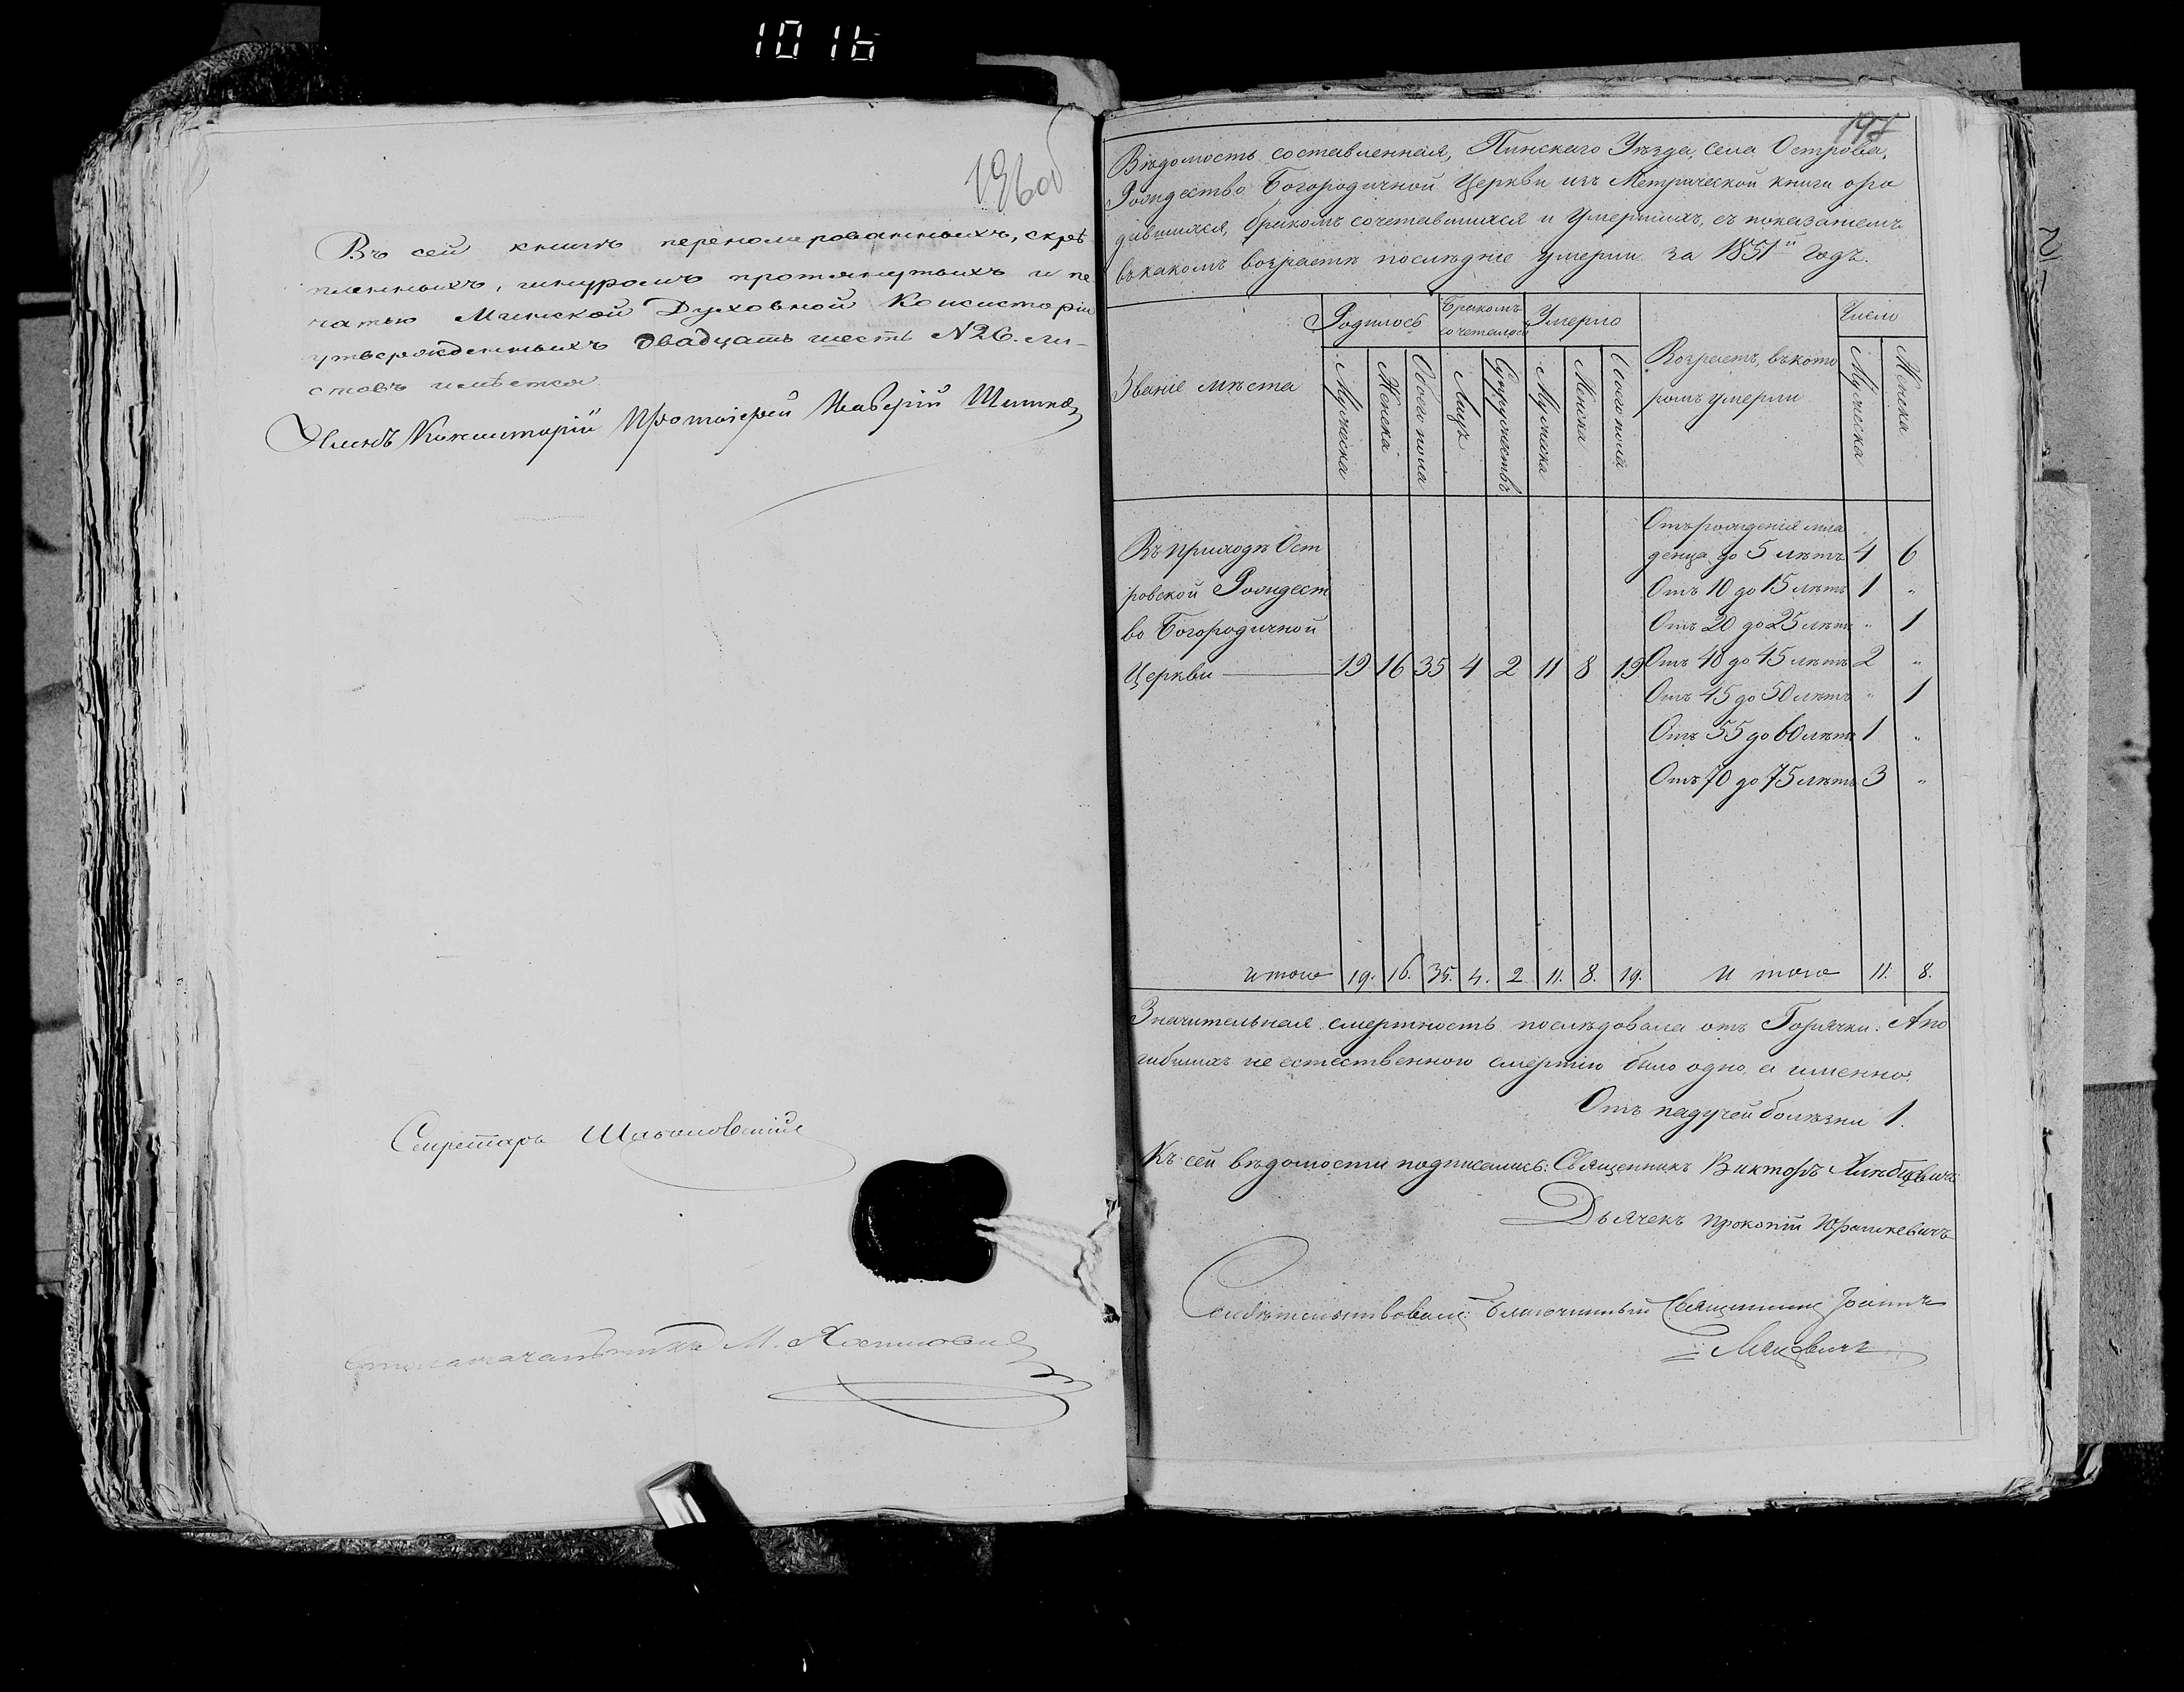 1016
196 об
Въ сей книгѣ переномерованныхъ, скрѣ
пленныхъ, шнуромъ протянутыхъ и пе
чатью Минской Духовной Консисторіи
утвержденныхъ двадцать шесть №26. ли-
стовъ имѣется
Членъ Консисторіи Протоіерей
Секретарь
Столоначальникъ М.
197
Вѣдомость составленная, Пинскаго Уѣзда, села Острова,
Рождество Богородичной Церкви изъ Метрической книги о ро
дившихся, бракомъ сочетавшихся и Умершихъ, съ показаніемъ
въ какомъ возрастѣ послѣдніе умерли за 1851й Годъ.
Званіе мѣста
Родилось
Бракомъ сочеталось
Умерло
Возрастъ, въ кото
ромъ умерли
Число
Мужеска
Женска
Обоего пола
Лицъ
Супружествъ
Мужеска
Женска
Обоего пола
Мужеска
Женска
Въ приходѣ Ост
ровской Рождест
во Богородичной
Церкви 19 16 35 4 2 11 8 19
Отъ рожденія мла
денца до 5 лѣтъ 4 6
Отъ 10 до 15 лѣтъ 1 "
Отъ 20 до 25 лѣтъ " 1
Отъ 40 до 45 лѣтъ 2 "
Отъ 45 до 50 лѣтъ " 1
Отъ 55 до 60 лѣтъ 1 "
Отъ 70 до 75 лѣтъ 3 "
Итого 19. 16. 35. 4. 2 11. 8. 19. Итого 11. 8.
Значительная смертность послѣдовала отъ Горячки. А по
гибшихъ не естественною смертію было одно, а именно:
Отъ падучей болѣзни 1.
Къ сей вѣдомости подписались: Священникъ Викторъ
Дьячекъ Прокопій Юрашкевичъ
Свидѣтельствовалъ: Благочинный Священникъ Іоаннъ
Мацкевичъ